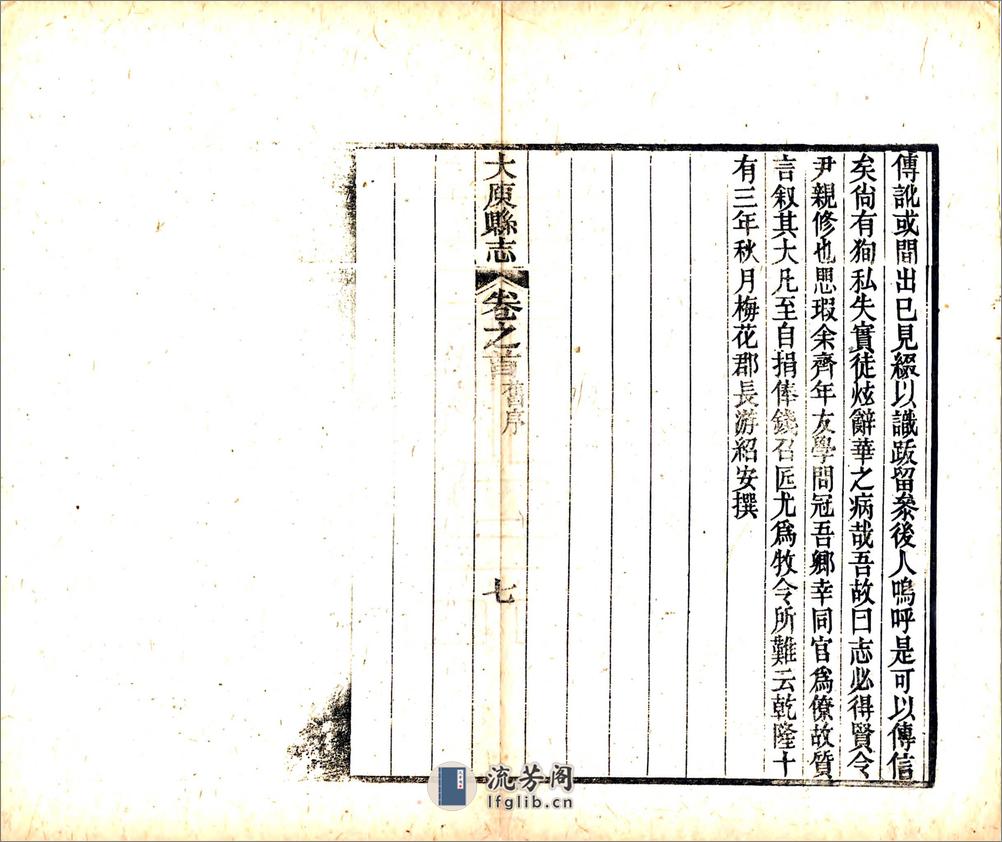 傳訛或間出已見綴以識跋留叅後人嗚呼是可以傳信
矣尙有狥私失實徒炫辭華之病哉吾故曰志必得賢令
尹親修也思瑕余齊年友學問冠吾鄉幸同官爲僚故質
言叙其大凡至自捐俸錢召匠尤爲牧令所難云乾隆十
有三年秋月梅花郡長游紹安撰
大庾縣志 卷之首 舊序 七
流芳阁
lfglib.cn